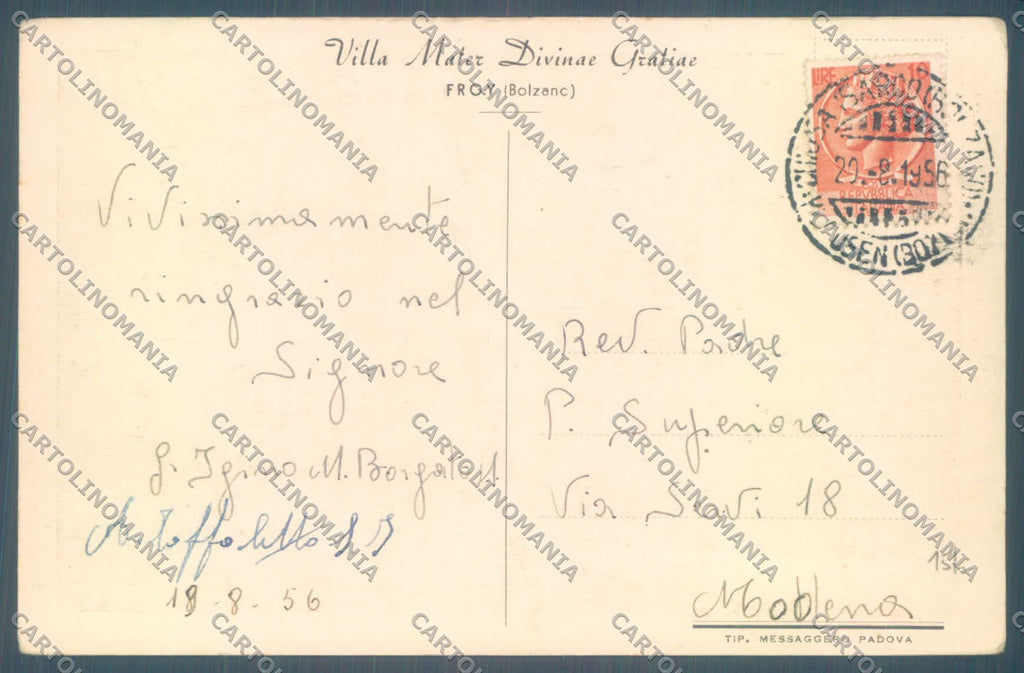 Villa Mater Divinae Gratiae
FROY (Bolzano)
LIRE 10
REPVBBLICA
CHIUSA
20.-8.1956
KLAUSEN (BOZEN)
Vivissimamente
ringrazio nel
Signore
Borgatti
18-8-56
Rev. Padre
P. Superiore
Via 18
Modena
15k
TIP. MESSAGGERO PADOVA
CARTOLINOMANIA